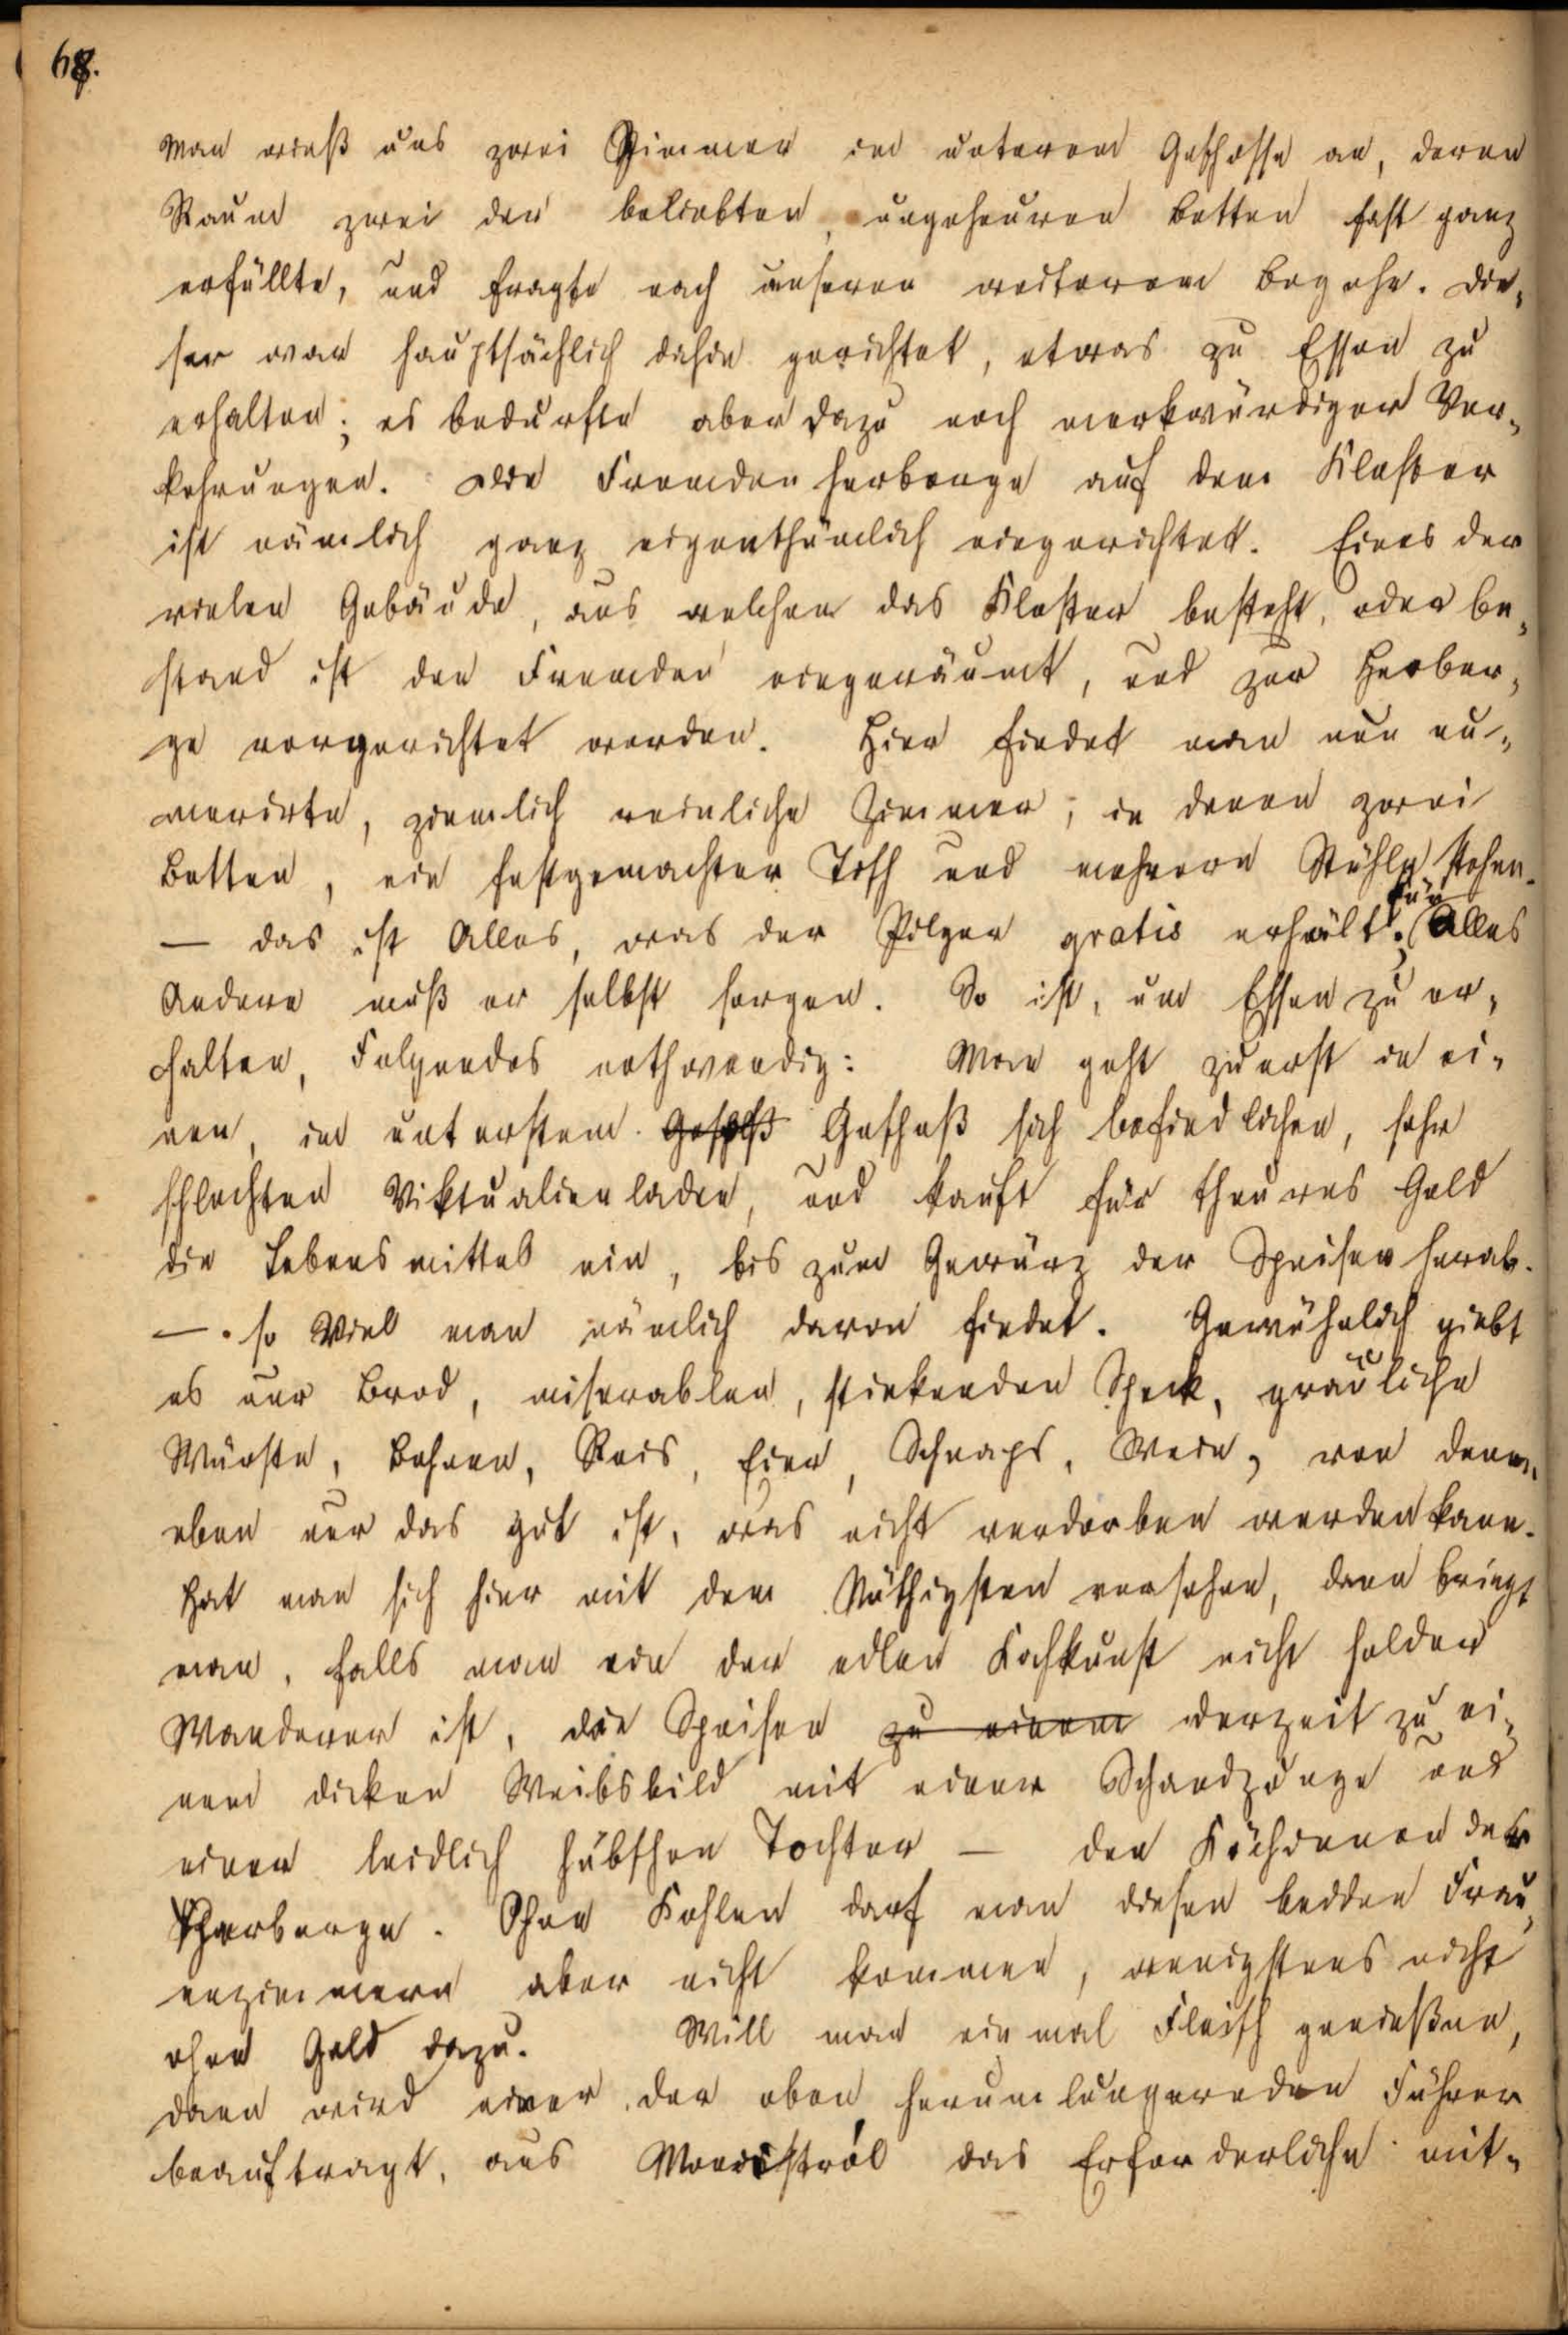 68.
Man wieß uns zwei Zimmer im unteren Geschosse an, deren
Raum zwei der beliebten, ungeheuren Betten fast ganz
erfüllte, und fragte nach unseren weiterem Begehr. Die-
ser war hauptsächlich dahin gerichtet, etwas zu Essen zu
erhalten; es bedurfte aber dazu noch merkwürdiger Vor-
kehrungen. Die Fremdenherberge auf dem Kloster
ist nämlich ganz eigenthümlich eingerichtet. Eines der
vielen Gebäude, aus welchem das Kloster besteht, oder be-
stand ist den Fremden eingeräumt, und zur Herber-
ge vorgerichtet worden. Hier findet man nun nu-
merirte, ziemlich reinliche Zimmer, in denen zwei
Betten, ein festgemachter Tisch und mehrere Stühle stehen.
— das ist Alles, was der Pilger gratis erhält; für Alles
Andere muß er selbst sorgen. So ist, um Essen zu er-
halten, Folgendes nothwendig: Man geht zuerst in ei-
nen, im unterstem Geschoß sich befindlichen, sehr
schlechten Viktualienladen, und kauft für theures Geld
die Lebensmittel ein, bis zum Gewürz der Speisen herab.
— so Viel man nämlich davon findet. Gewöhnlich giebt
es nur Brod, miserablen, stinkenden Speck, gräuliche
Würste, Bohnen, Reis, Eier, Schnaps, Wein, von denen
eben nur das gut ist, was nicht verdorben werden kann.
Hat man sich hier mit dem Nöthigsten versehen, dann bringt
man, falls man ein der edlen Kochkunst nicht holder
Wanderer ist, die Speisen zu einem derzeit zu ei-
nem dicken Weibsbild mit einer Schandzunge und
einer leidlich hübschen Tochter — den Köchinnen der
Herberge. Ohne Kohlen darf man diesen beiden Frau-
enzimmern aber nicht kommen, wenigstens nicht
ohne Geld dazu. Will man einmal Fleisch genießen,
dann wird einer der oben herumlungernden Führer
beauftragt, aus Monistról das Erforderliche mit-